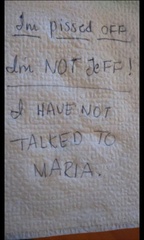 Im pissed OFF
Im NOT JeFF!
I HAVE NOT
TALKED TO
MARIA.